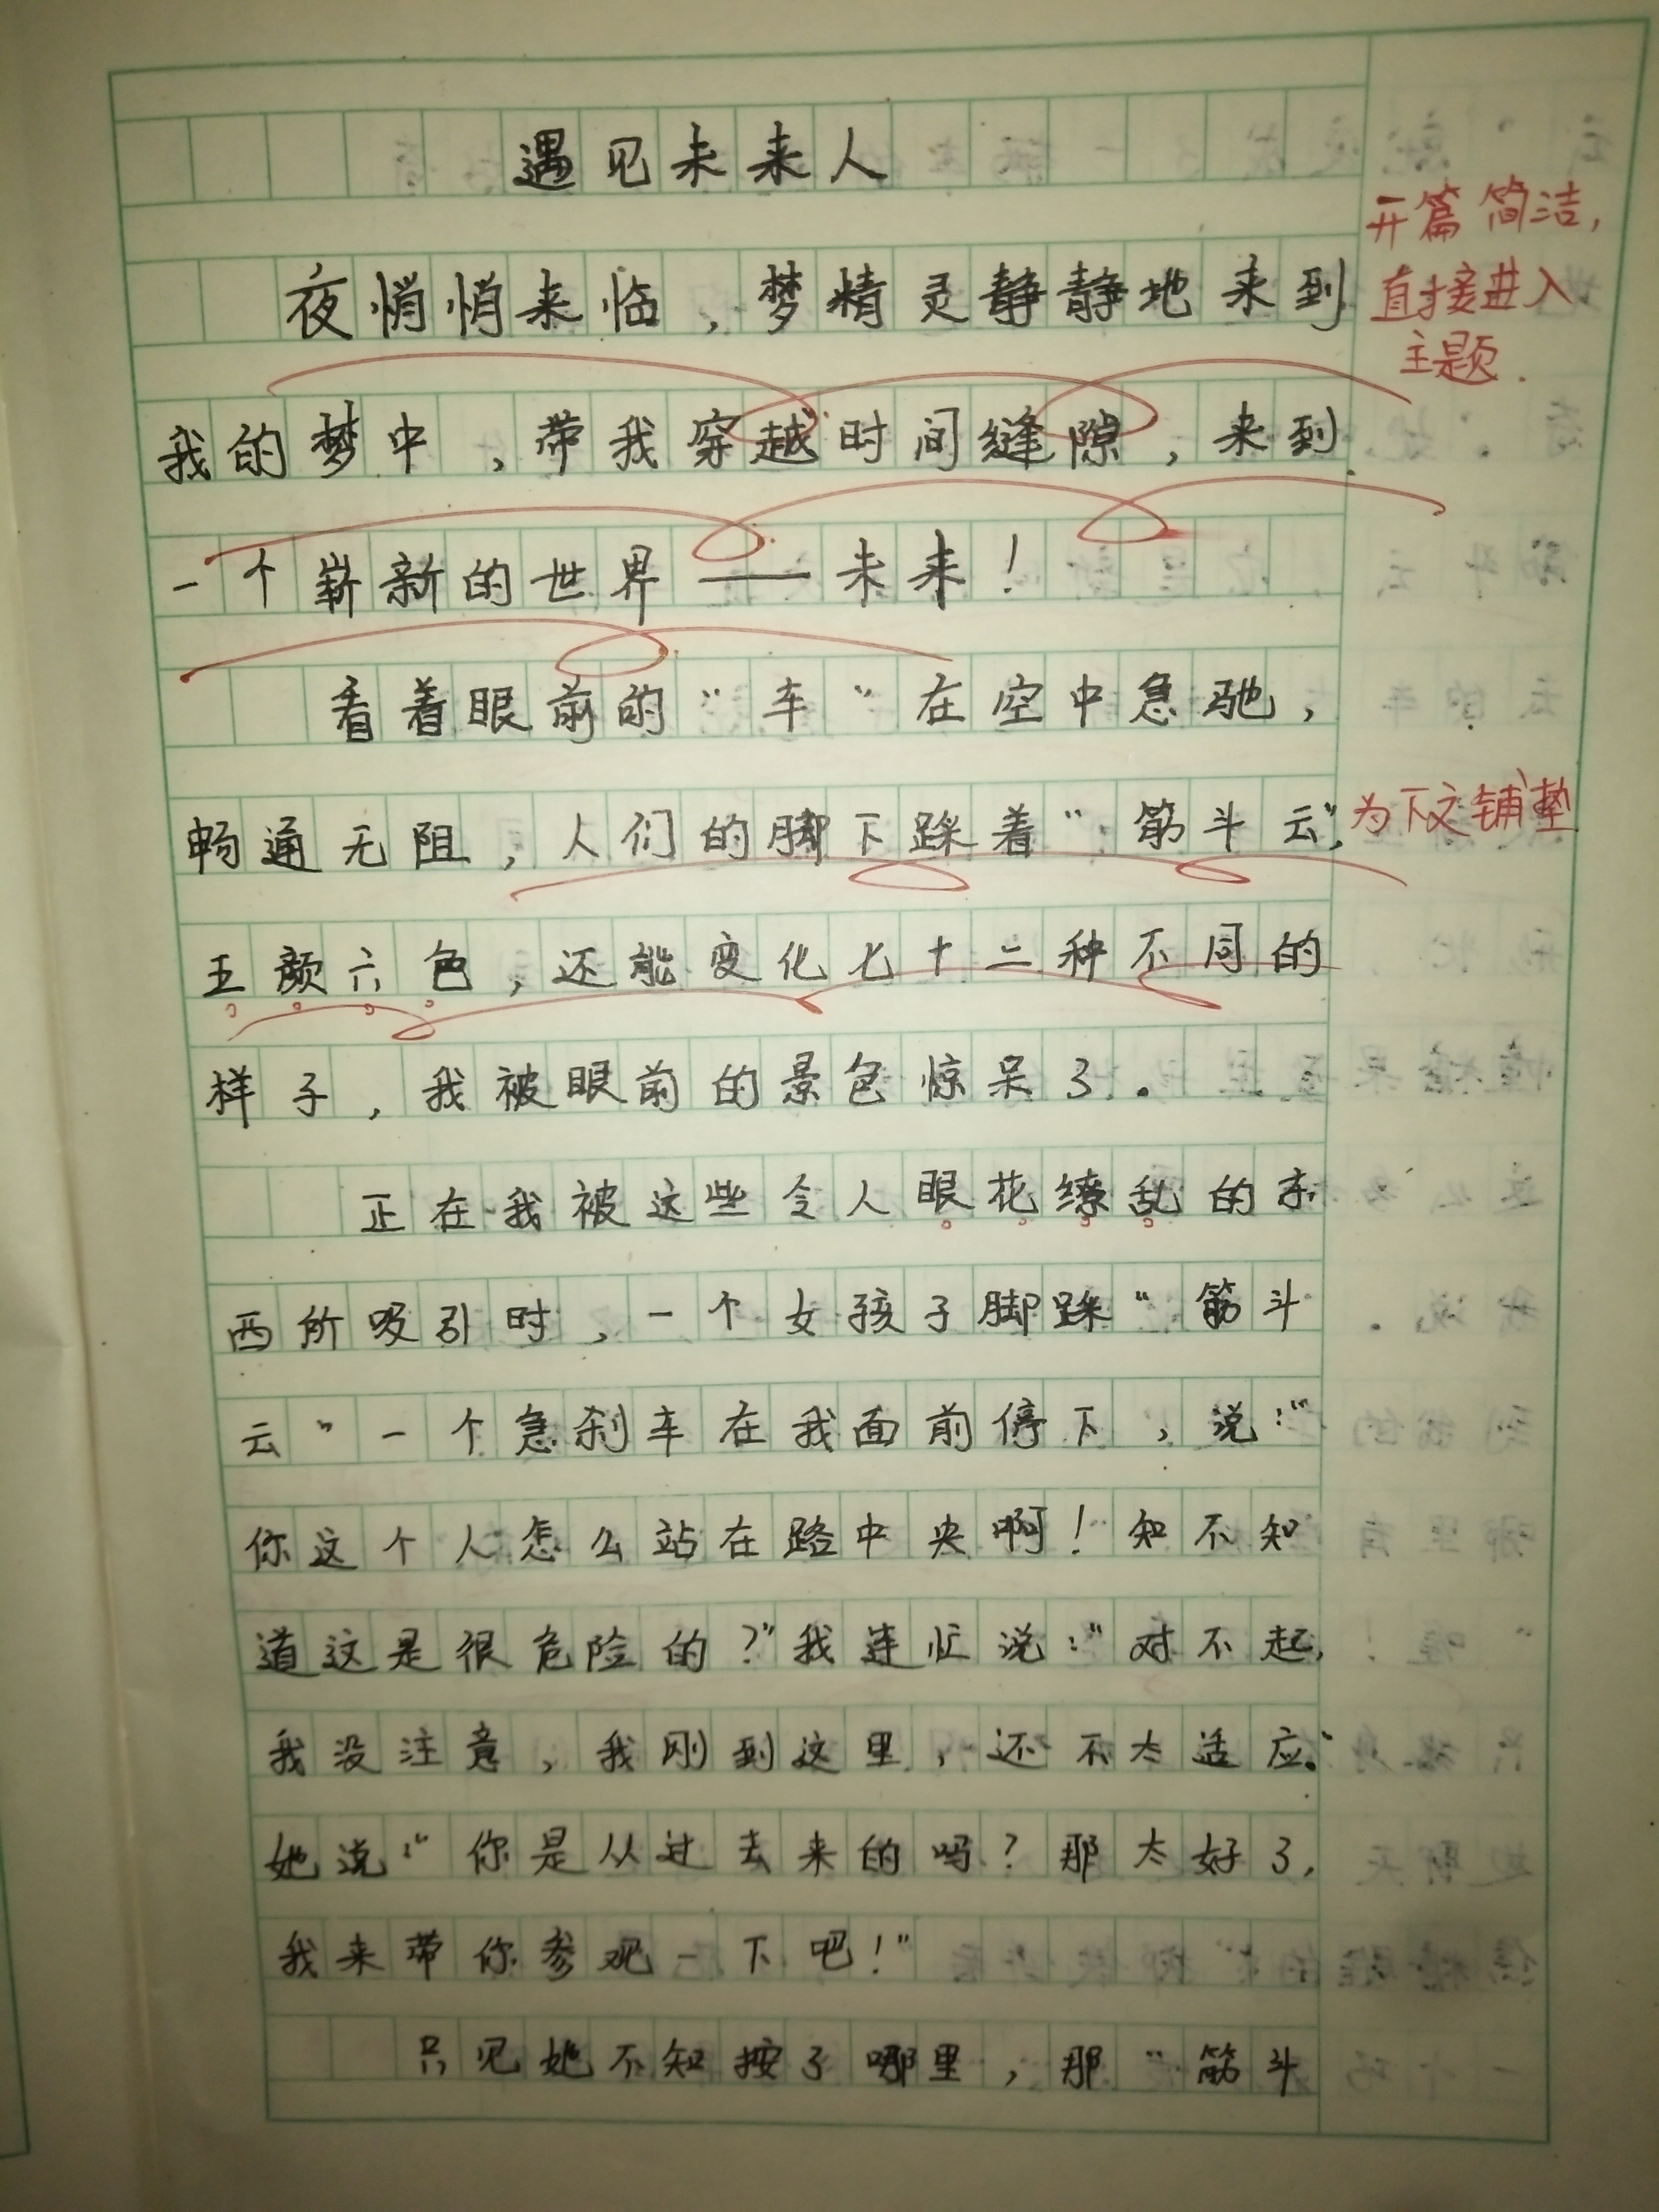 遇见未来人
开篇简洁，
直接进入
主题.
夜悄悄来临，梦精灵静静地来到
我的梦中，带我穿越时间缝隙，来到
一个崭新的世界——未来！
看着眼前的“车”在空中急驰，
畅通无阻，人们的脚下踩着“筋斗云”，
为下文铺垫
五颜六色，还能变化七十二种不同的
样子，我被眼前的景色惊呆了。
正在我被这些令人眼花缭乱的东
西所吸引时，一个女孩子脚踩“筋斗
云”一个急刹车在我面前停下，说：“
你这个人怎么站在路中央啊！知不知
道这是很危险的？”我连忙说：“对不起，
我没注意，我刚到这里，还不太适应。”
她说：“你是从过去来的吗？那太好了，
我来带你参观一下吧！”
只见她不知按了哪里，那“筋斗